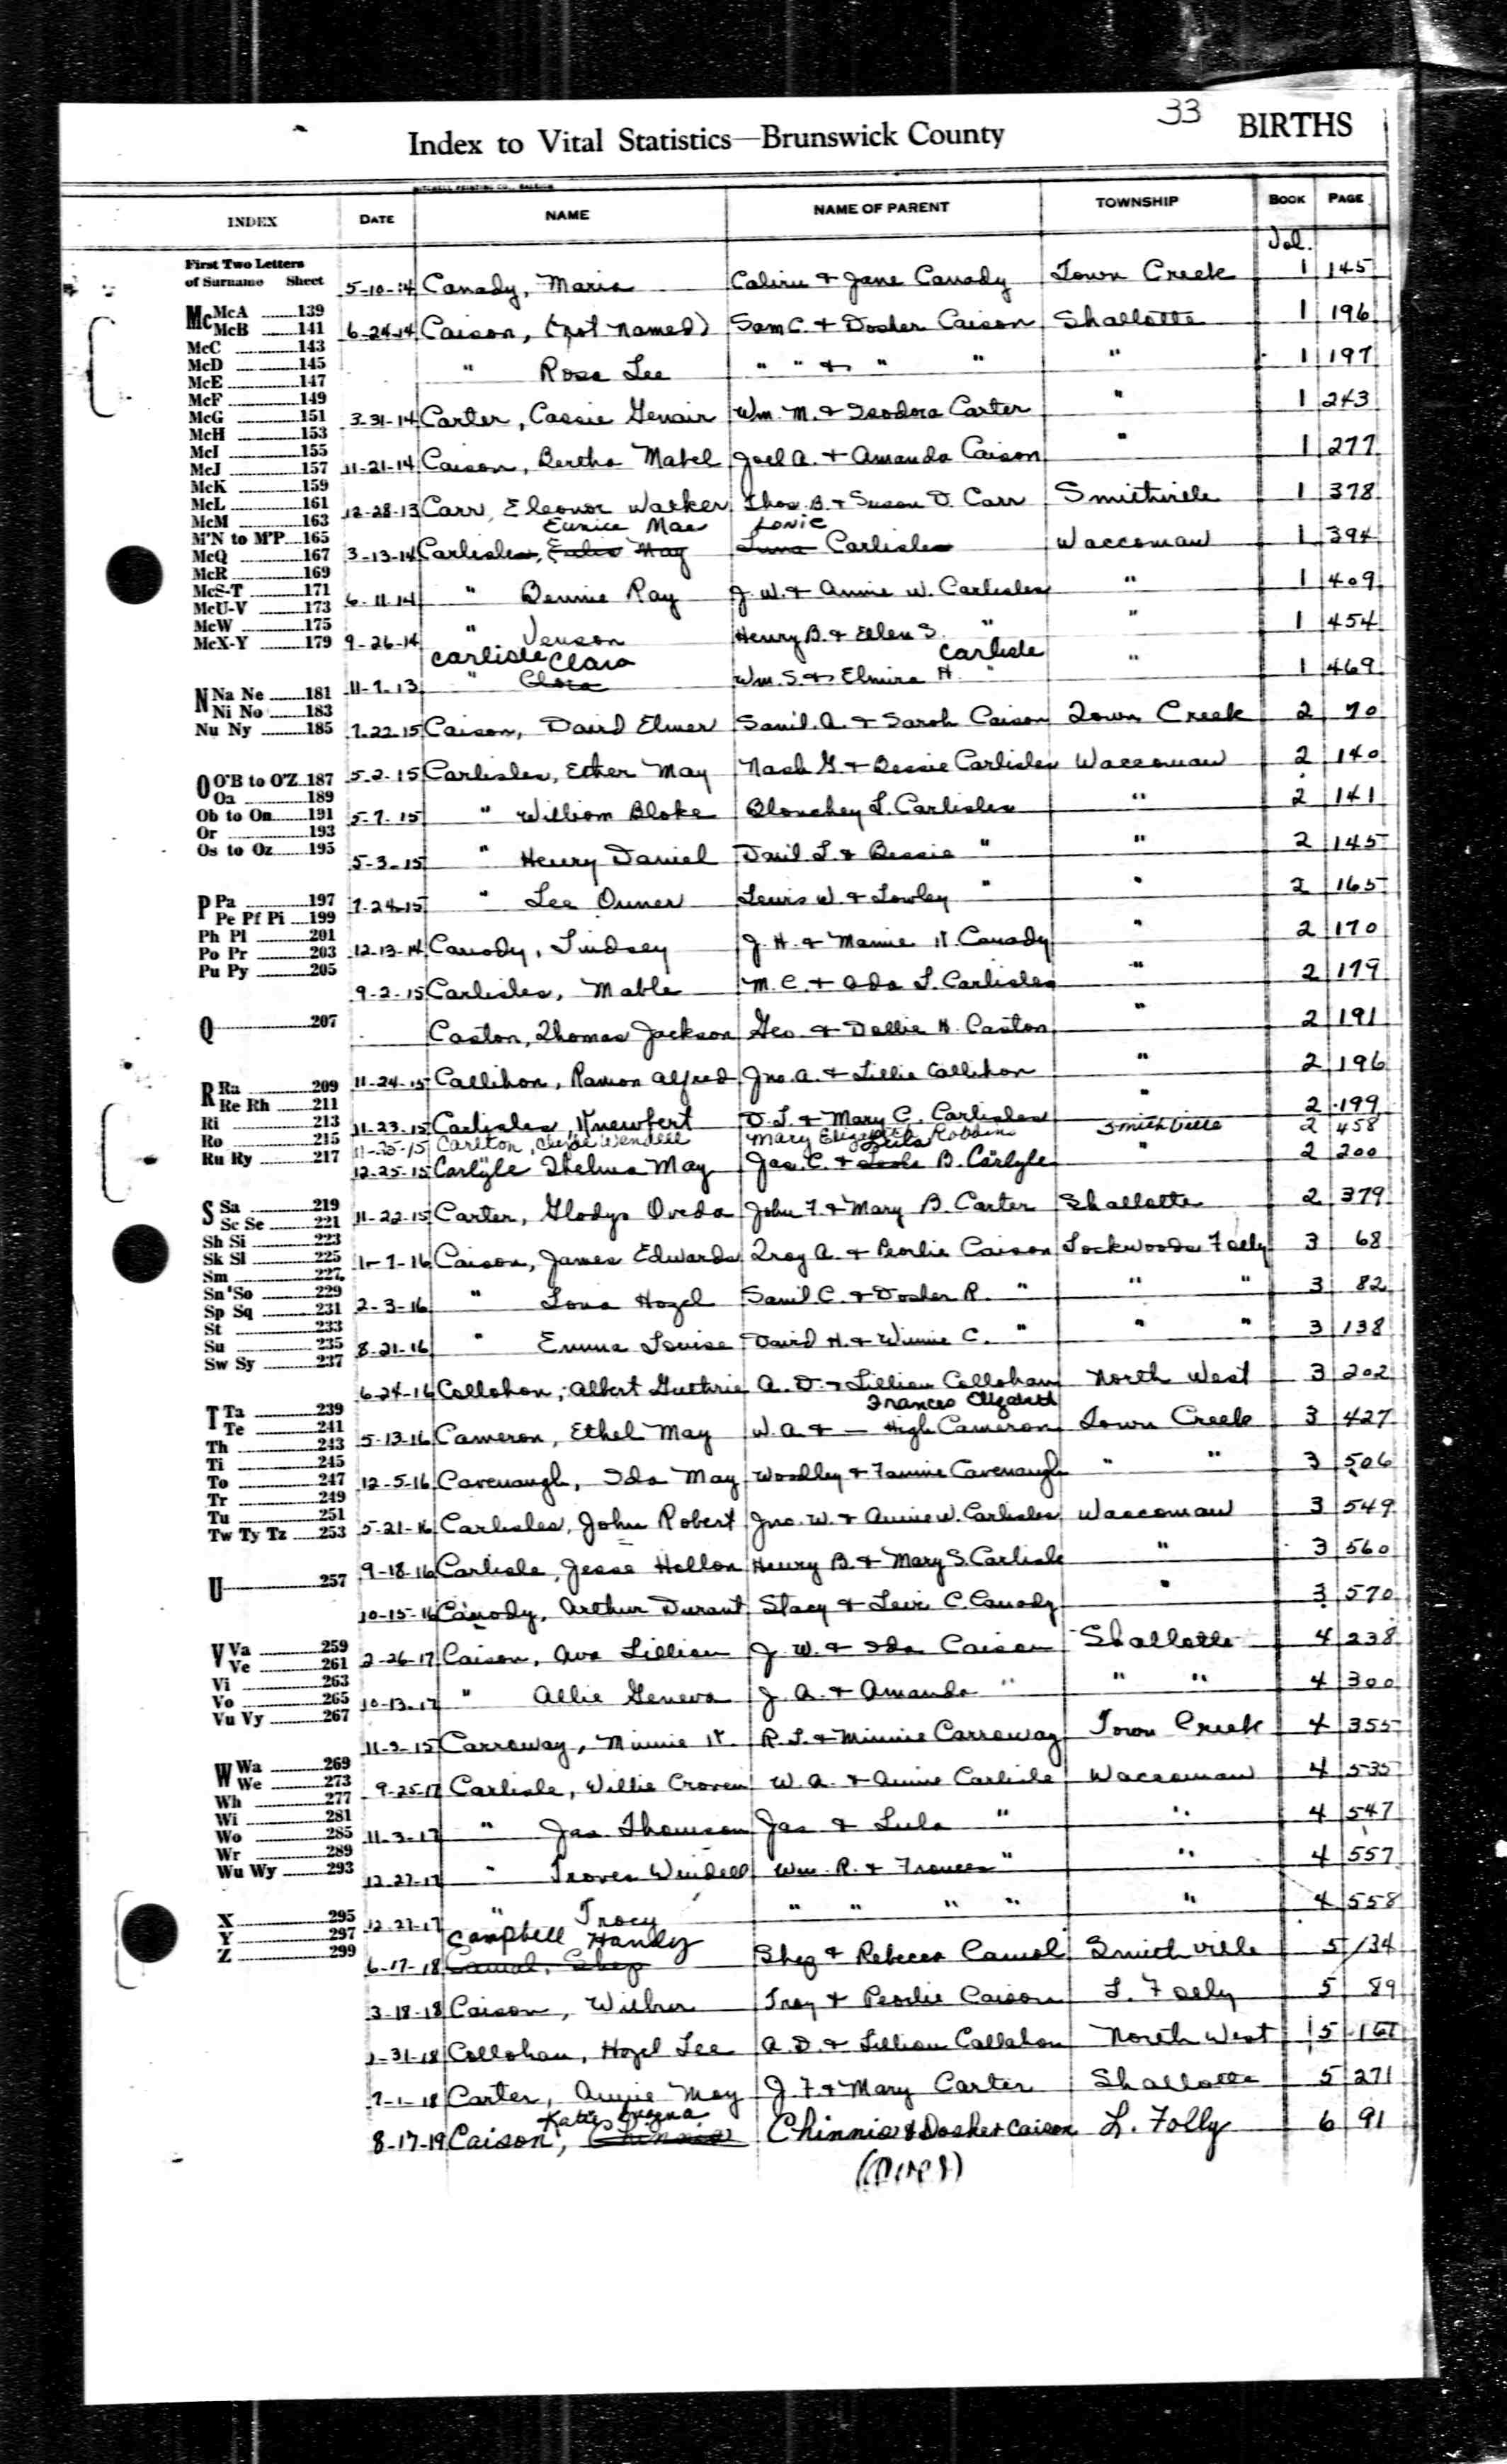 33
Index to Vital Statistics—Brunswick County BIRTHS
MITCHELL PRINTING CO., RALEIGH
INDEX DATE NAME NAME OF PARENT TOWNSHIP BOOK PAGE
Vol.
First Two Letters
of Surname Sheet
McA 139
Mc McB 141
McC 143
McD 145
McE 147
McF 149
McG 151
McH 153
McI 155
McJ 157
McK 159
McL 161
McM 163
M'N to M'P 165
McQ 167
McR 169
McS-T 171
McU-V 173
McW 175
McX-Y 179
N Na Ne 181
Ni No 183
Nu Ny 185
O O'B to O'Z 187
Oa 189
Ob to On 191
Or 193
Os to Oz 195
P Pa 197
Pe Pf Pi 199
Ph Pl 201
Po Pr 203
Pu Py 205
Q 207
R Ra 209
Re Rh 211
Ri 213
Ro 215
Ru Ry 217
S Sa 219
Sc Se 221
Sh Si 223
Sk Sl 225
Sm 227
Sn So 229
Sp Sq 231
St 233
Su 235
Sw Sy 237
T Ta 239
Te 241
Th 243
Ti 245
To 247
Tr 249
Tu 251
Tw Ty Tz 253
U 257
V Va 259
Ve 261
Vi 263
Vo 265
Vu Vy 267
W Wa 269
We 273
Wh 277
Wi 281
Wo 285
Wr 289
Wu Wy 293
X 295
Y 297
Z 299
5-10-14 Canady, Maria & Jane Canady Town Creek 1 145
6-24-14 Caison, (not named) Sam C. & Dosher Caison Shallotte 1 196
" Rosa Lee " " & " " " 1 197
3-31-14 Carter, Cassie Genair Wm. M. & Isodora Carter " 1 243
11-21-14 Caison, Bertha Mabel Joel A. & Amanda Caison " 1 277
12-28-13 Carr, Eleonor Walker Thos. B. & Susan D. Carr Smithville 1 378
Eunice Mae Lonie
3-13-14 Carlisle, May Carlisle Waccamaw 1 394
6-11-14 " Bennie Ray J. W. & Annie W. Carlisle " 1 409
9-26-14 " Venson Henry B. & Ellen S. " " 1 454
Carlisle Clara Carlisle
11-7-13 " Clara Wm. S. & Elmira H. " " 1 469
7-22-15 Caison, David Elmer Saml. A. & Sarah Caison Town Creek 2 70
5-2-15 Carlisle, Ether May Nash G. & Bessie Carlisle Waccamaw 2 140
5-7-15 " William Blake Blanchey L. Carlisle " 2 141
5-3-15 " Henry Daniel Danl L. & Bessie " " 2 145
7-24-15 " Lee Lewis W. & Lowley " " 2 165
12-13-14 Canady, Lindsey J. H. & Mamie K. Canady " 2 170
9-2-15 Carlisle, Mable M. C. & Ada L. Carlisle " 2 179
Caston, Thomas Jackson Geo. & Dollie H. Caston " 2 191
11-24-15 Callihan, Ramon Alfred Jno. A. & Lillie Callihan " 2 196
11-23-15 Carlisle, D. L. & Mary C. Carlisle " 2 199
11-25-15 Carlton, Clyde Wendell Mary Elizabeth Robbins Smithville 2 458
Lula
12-25-15 Carlyle Thelma May Jas. C. & B. Carlyle " 2 200
11-22-15 Carter, Gladys Oveda John F. & Mary B. Carter Shallotte 2 379
1-7-16 Caison, James Edwards Troy A. & Peorlie Caison Lockwoods Folly 3 68
2-3-16 " Lona Hazel Saml C. & Dosher R. " " " 3 82
8-21-16 " Emma Louise David H. & Winnie C. " " " 3 138
6-24-16 Callahan, Albert Guthrie A. D. & Lillian Callahan North West 3 202
Frances Elizabeth
5-13-16 Cameron, Ethel May W. A. & — High Cameron Town Creek 3 427
12-5-16 Cavenaugh, Ida May Woodley & Fannie Cavenaugh " " 3 506
5-21-16 Carlisle, John Robert Jno. W. & Annie W. Carlisle Waccamaw 3 549
9-18-16 Carlisle, Jesse Hollon Henry B. & Mary S. Carlisle " 3 560
10-15-16 Canady, Arthur Durant Stacy & Levi C. Canady " 3 570
2-26-17 Caison, Ava Lillian J. W. & Ida Caison Shallotte 4 238
10-13-17 " Allie Geneva J. A. & Amanda " " " 4 300
11-2-15 Carroway, Minnie K. R. L. & Minnie Carroway Town Creek 4 355
9-25-17 Carlisle, Willie Craven W. A. & Annie Carlisle Waccamaw 4 535
11-3-17 " Jas. Thomson Jas & Lula " " 4 547
12-27-17 " Trover Windell Wm. R. & Frances " " 4 557
12-27-17 " Tracy " " " " " 4 558
Campbell Handy
6-17-18 Camol, Shep Shep & Rebecca Camol Smithville 5 134
3-18-18 Caison, Wilbur Troy & Peorlie Caison L. Folly 5 89
1-31-18 Callahan, Hazel Lee A. D. & Lillian Callahan North West 5 161
7-1-18 Carter, Annie May J. F. & Mary Carter Shallotte 5 271
Katie
8-17-19 Caison, Chinnis Chinnis & Dosher Caison L. Folly 6 91
(over)